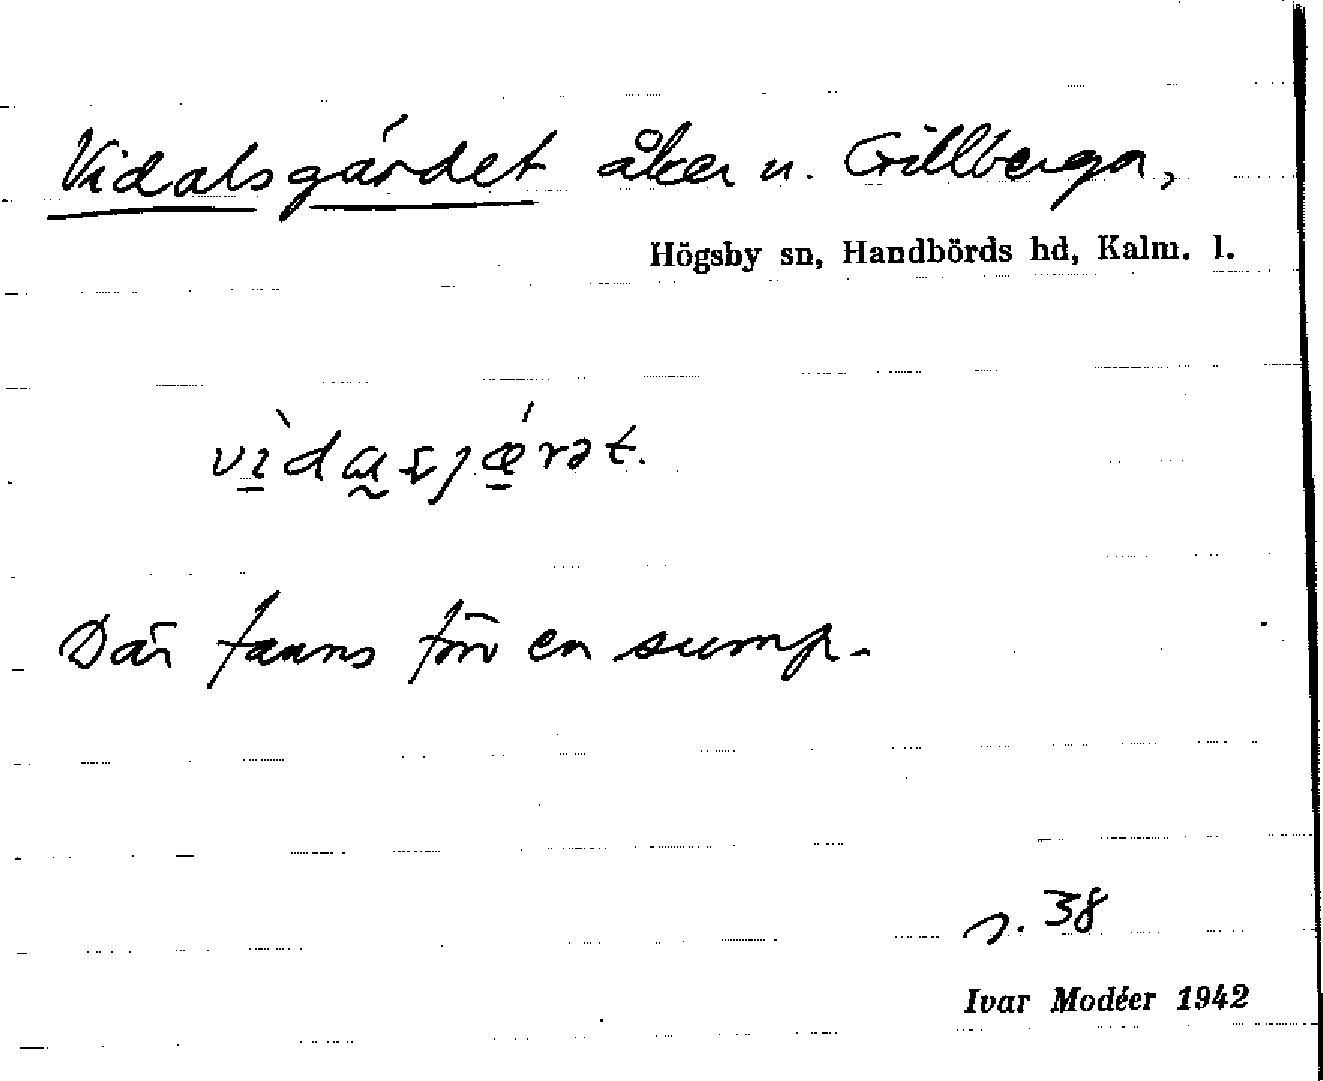 Vidalsgärdet åker u. Gillberga,
Högsby sn, Handbörds hd, Kalm. l.
Där fanns förr en sump.
s. 38
Ivar Modéer 1942